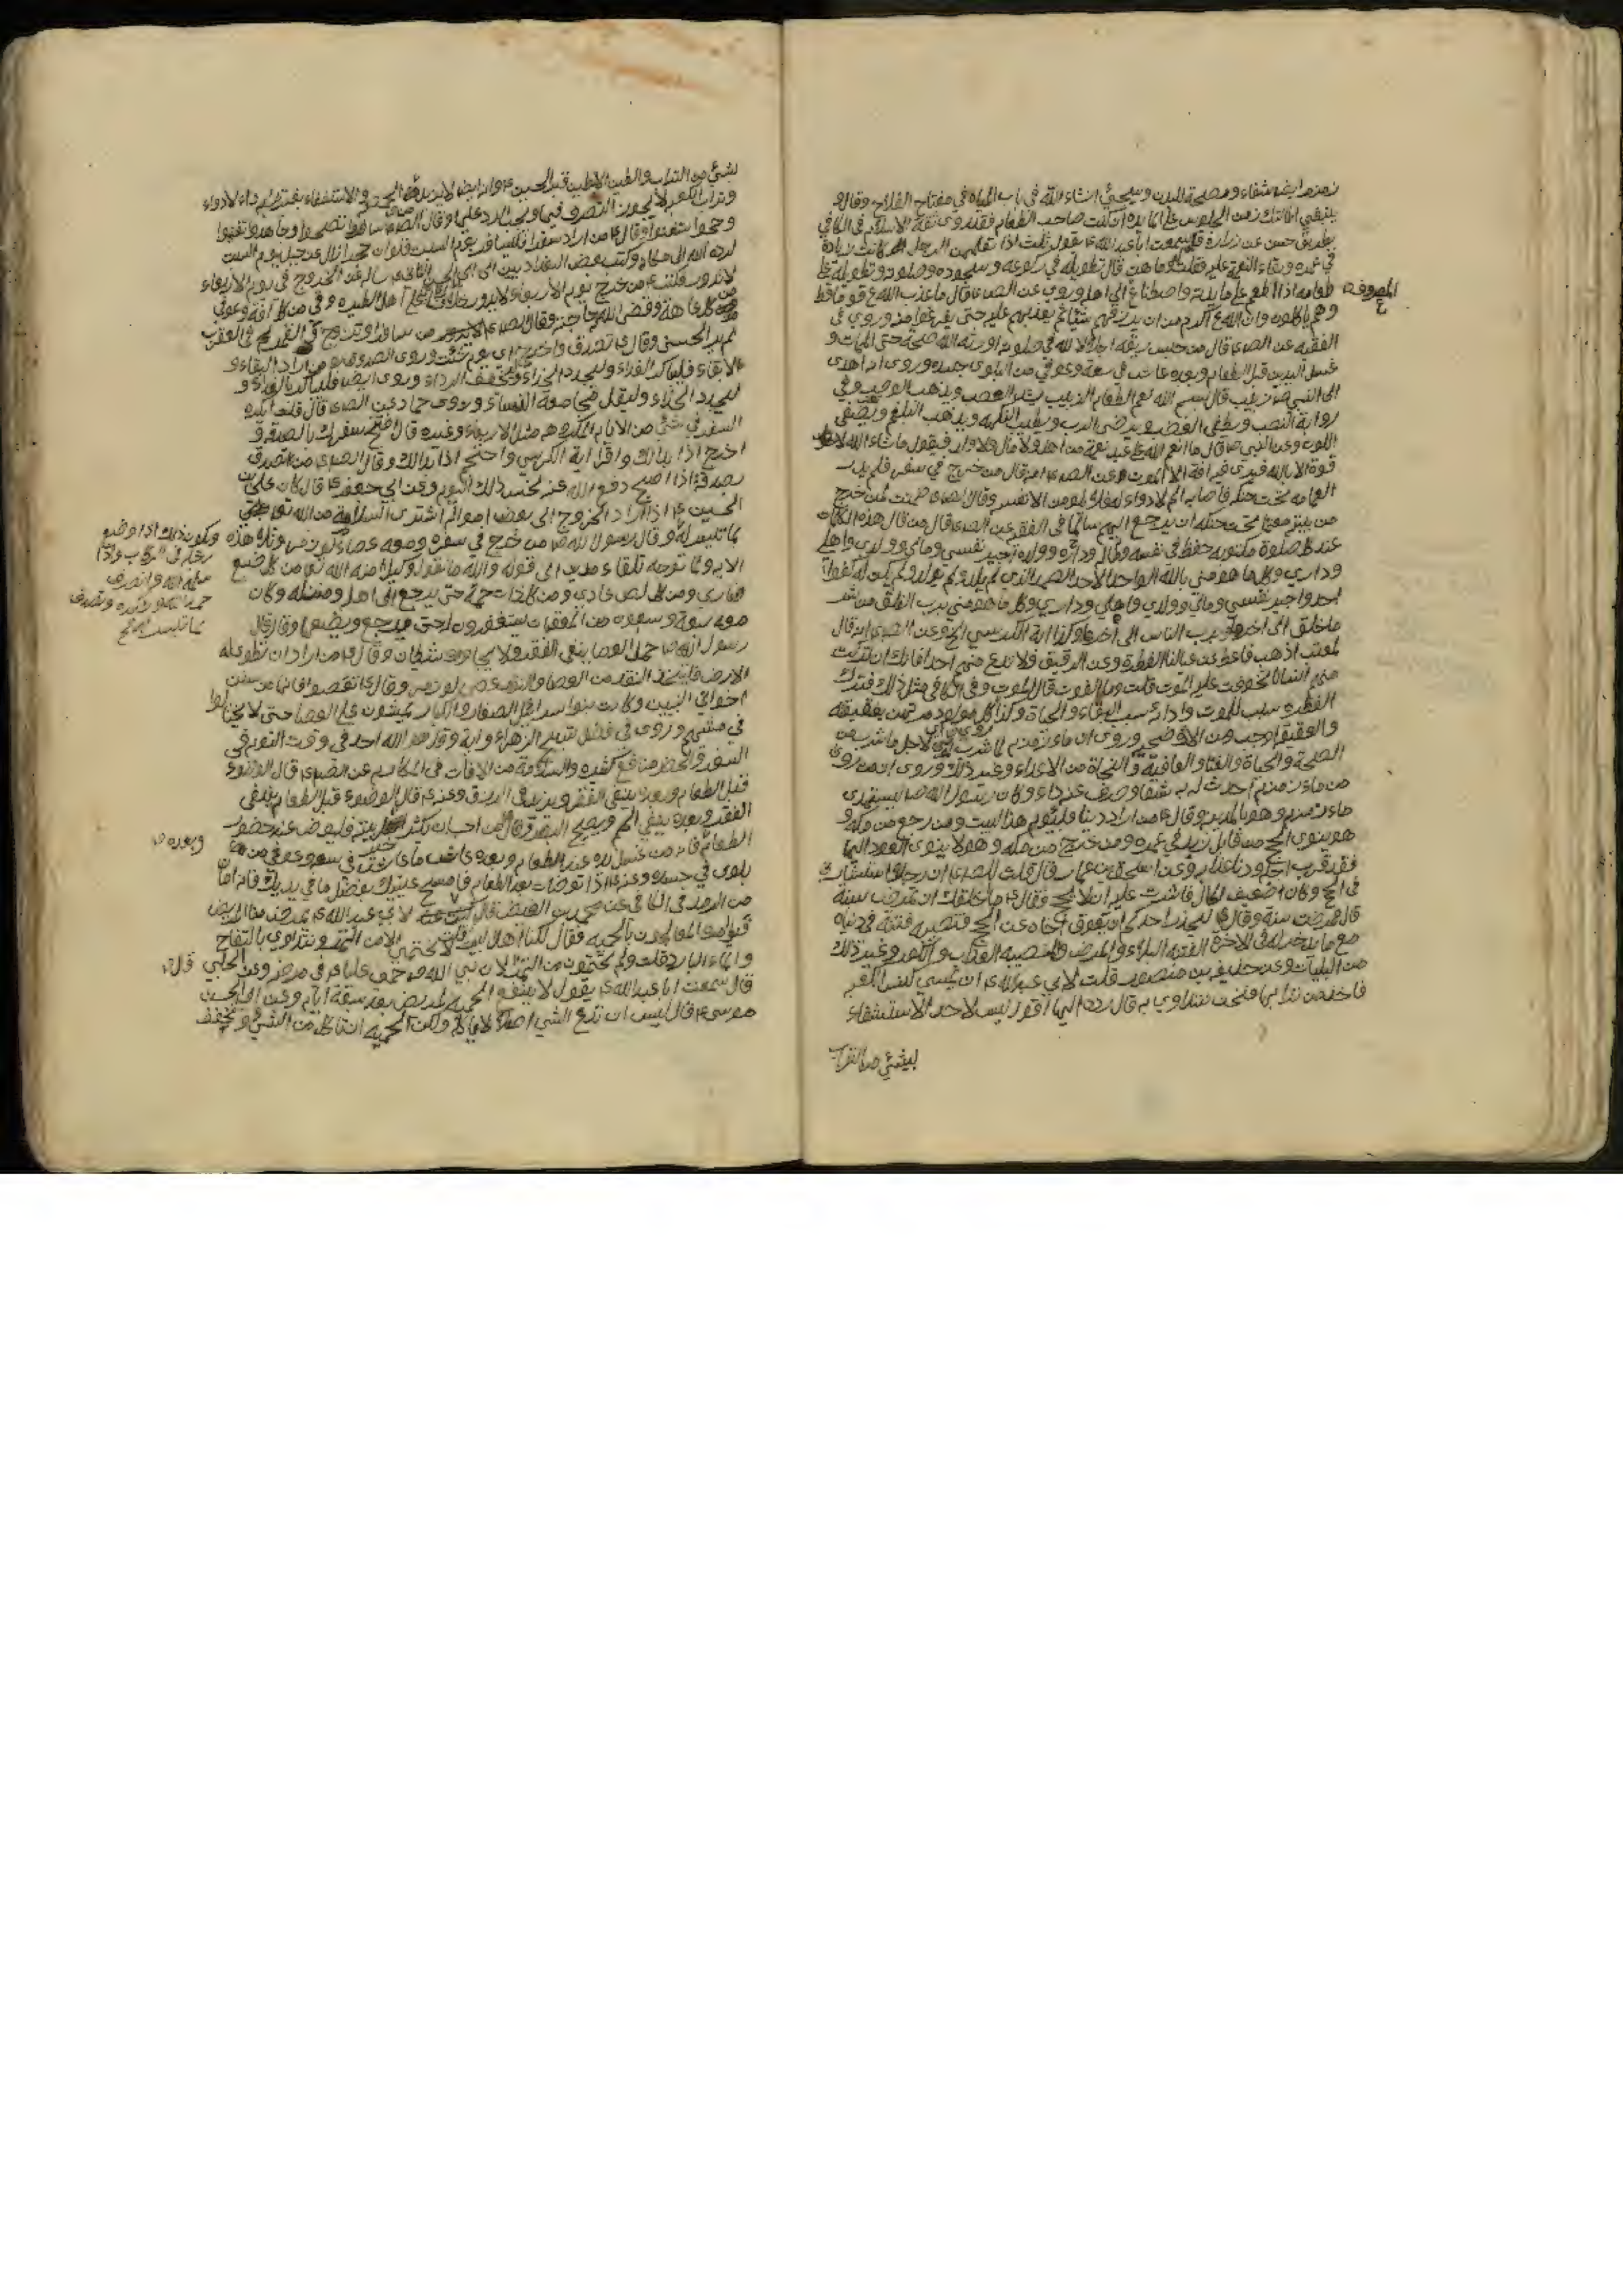 زمزم ايضا شفاء ومصحة للبدن وسيجيء انشاء الله في باب المياه في مفتاح الفلاح وقال و
ينبغي اطالتك زمن الجلوس على المايدة ان كنت صاحب الطعام فقد روى ثقة الاسلام في الكافي
بطريق حسن عن زرارة قال سمعت ابا عبد الله ع يقول ثلث اذا تعلمهن الرجل كانت زيادة
في عمره وبقاء النعمة عليه فقلت وما هن قال تطويله في ركوعه وسجوده وصلوته وتطويله
طعامه اذا اطعم على مايدته واصطناعه الى اهله وروي عن الص ع قال ما عذب الله ع قوما قط
المعروف
وهم ياكلون وان الله ع اكرم من ان يرزقهم شيئا ثم يعذبهم عليه حتى يفرغوا منه وروي في
الفقيه عن الص ع قال من حبس ريقه اجلالا لله في صلوته اورثه الله صحة حتى الممات و
غسل اليدين قبل الطعام وبعده عاش في سعة وعوفي من البلوى جسده وروى انه اهدى
الى النبي ص زبيب قال بسم الله نعم الطعام الزبيب يشد العصب ويذهب الوصب وفي
رواية النصب ويطفي الغضب ويرضي الرب ويطيب النكهة ويذهب البلغم ويصفي
اللون وعن النبي ص قال ما انعم الله على عبد نعمة من اهل ولا مال ولا ولد فيقول ما شاء الله لا
قوة الا بالله فيرى فيه آفة الا الموت وعن الص ع انه قال من خرج في سفر فلم يدر
العمامة تحت حنكه فاصابه الم لا دواء له فلا يلومن الا نفسه وقال الص ع ضمنت لمن خرج
من بيته معتما تحت حنكه ان يرجع اليهم سالما في الفقيه عن الص ع قال من قال هذه الكلمات
عند كل صلوة مكتوبة حفظ في نفسه وماله وداره وولده اجير نفسي ومالي وولدي واهلي
وداري وكل ما هو مني بالله الواحد الاحد الصمد الذي لم يلد ولم يولد ولم يكن له كفوا
احد واجير نفسي ومالي وولدي واهلي وداري وكل ما هو مني برب الفلق من شر
ما خلق الى اخرها وبرب الناس الى اخرها وكذا اية الكرسي الخ وعن الص ع انه قال
لمعتب اذهب فاعط عن عيالنا الفطرة وعن الرقيق فلا تدع منهم احدا فانك ان تركت
منهم انسانا تخوفت عليه الفوت قلت وما الفوت قال الموت وفي الكافي مثل ذلك فترك
الفطرة سبب للموت واداؤه سبب البقاء والحياة وكذا كل مولود مرتهن بعقيقته
والعقيقة اوجب من الاضحية وروي ان ماء زمزم لما شرب له لاجل ما شرب من
الصحة والحياة والغنا والعافية والنجاة من الاعداء وغير ذلك وروى ان من روى
من ماء زمزم احدث له به شفاء وصرف عنه داء وكان رسول الله ص يستهدي
ماء زمزم وهو بالمدينة وقال ع من اراد دينا فليؤم هذا البيت ومن رجع من مكة و
هو ينوي الحج من قابل زيد في عمره ومن خرج من مكة وهو لا ينوي العود اليها
فقد قرب اجله ودنا عذابه وعن اسحق بن عمار قال قلت للص ع ان رجلا استشارني
في الحج وكان ضعيف الحال فاشرت عليه ان لا يحج فقال ع ما خلقك ان تمرض سنة
قال فمرضت سنة وقال ع ليحذر احدكم ان يعوق اخاه عن الحج فتصيبه فتنة في دنياه
مع ما يدخر له في الاخرة الفتنة البلاء والمرض والمصيبة العذاب والكفر وغير ذلك
من البليات وعن حذيفة بن منصور قلت لابي عبد الله ع ان كيسي
فاخذ من ترابها فنحن نتداوى به قال رده اليها اقول ليس لاحد الاستشفاء
بشيء من التراب
بشيء من التراب والطين الا طين قبر الحسين ع وانه ايضا لا يزيد على الحمصة والاستشفاء بغيره داء لا دواء
وتراب الكعبة لا يجوز التصرف فيها ويجب الرد عليها وقال الص ع سافروا تصحوا وجاهدوا تغنموا
وحجوا تستغنوا وقال ع من اراد سفرا فليسافر يوم السبت فلو ان حجرا زال عن جبل يوم السبت
لرده الله الى مكانه وكتب بعض البغداديين الى ابي الحسن الثاني ع يساله عن الخروج في يوم الاربعاء
لا يدور فكتب ع من خرج يوم الاربعاء لا يدور خلافا على اهل الطيرة وقي من كل آفة وعوفي
من كل عاهة وقضى الله حاجته وقال الص ع من سافر او تزوج في القمر في العقرب
لم ير الحسنى وقال ع تصدق واخرج اي يوم شئت وروى الصدوق من اراد البقاء و
لا بقاء فليباكر الغداء وليجود الحذاء وليخفف الرداء وروى ايضا فليباكر بالغداء و
ليجود الحذاء وليقل مجامعة النساء وروى حماد عن الص ع قال قلت ايكره
السفر في شيء من الايام المكروهة مثل الاربعاء وغيره قال افتح سفرك بالصدقة و
اخرج اذا بدا لك واقرا اية الكرسي واحتجم اذا بدا لك وقال الص ع من تصدق
بصدقة اذا اصبح دفع الله عنه نحس ذلك اليوم وعن ابي جعفر ع قال كان علي بن
الحسين ع اذا اراد الخروج الى بعض امواله اشترى السلامة من الله تعالى
بما تيسر له وقال رسول الله ص من خرج في سفره ومعه عصا لوز مر وتلا هذه
ويكون ذلك اذا وضع
رجله في الركاب واذا
سلمه الله وانصرف
حمد الله وشكره وتصدق
بما تيسر
الاية ولما توجه تلقاء مدين الى قوله والله على ما نقول وكيل امنه الله تعالى من كل سبع
ضاري ومن كل لص عادي ومن كل ذات حمة حتى يرجع الى اهله ومنزله وكان
معه سبعة وسبعون من المعقبات يستغفرون له حتى يرجع ويضعها وقال قال
رسول الله ص حمل العصا ينفي الفقر ولا يجاوره شيطان وقال ع من اراد ان تطوى له
الارض فليتخذ النقد من العصا والنقد عصى لوز مر وقال ع تعصوا فانها من سنن
اخواني النبيين وكانت بنوا اسرائيل الصغار والكبار يمشون على العصا حتى لا يختالوا
في مشيهم وروى في فضل تسبيح الزهراء واية وقل هو الله احد في وقت النوم في
السفر والحضر منافع كثيرة والسلامة من الافات في المكارم عن الص ع قال الوضوء
قبل الطعام وبعده ينفي الفقر ويزيد في الرزق وعنه ع قال الوضوء قبل الطعام ينفي
الفقر وبعده ينفي الهم ويصح البصر وقال من احب ان يكثر خير بيته فليتوضا عند حضور
الطعام قال ع من غسل يده عند الطعام وبعده عاش ما عاش في سعة وعوفي من
وبعده
بلوى في جسده وعنه ع اذا توضات بعد الطعام فامسح عينيك بفضل ما في يديك فانه امان
من الرمد في الكافي عن محمد بن الفيض قال قلت لابي عبد الله ع يمرض منا المريض
فيامره المعالجون بالحمية فقال لكنا اهل بيت لا نحتمي الا من التمر ونتداوى بالتفاح
والماء البارد قلت ولم تحتمون من التمر قال لان نبي الله ص حمى عليا ع في مرضه وعن الحلبي
قال سمعت ابا عبد الله ع يقول لا ينفع الحمية لمريض بعد سبعة ايام وعن ابي الحسن
موسى ع قال ليس ان تدع الشيء اصلا لا تاكله ولكن الحمية ان تاكل من الشيء وتخفف